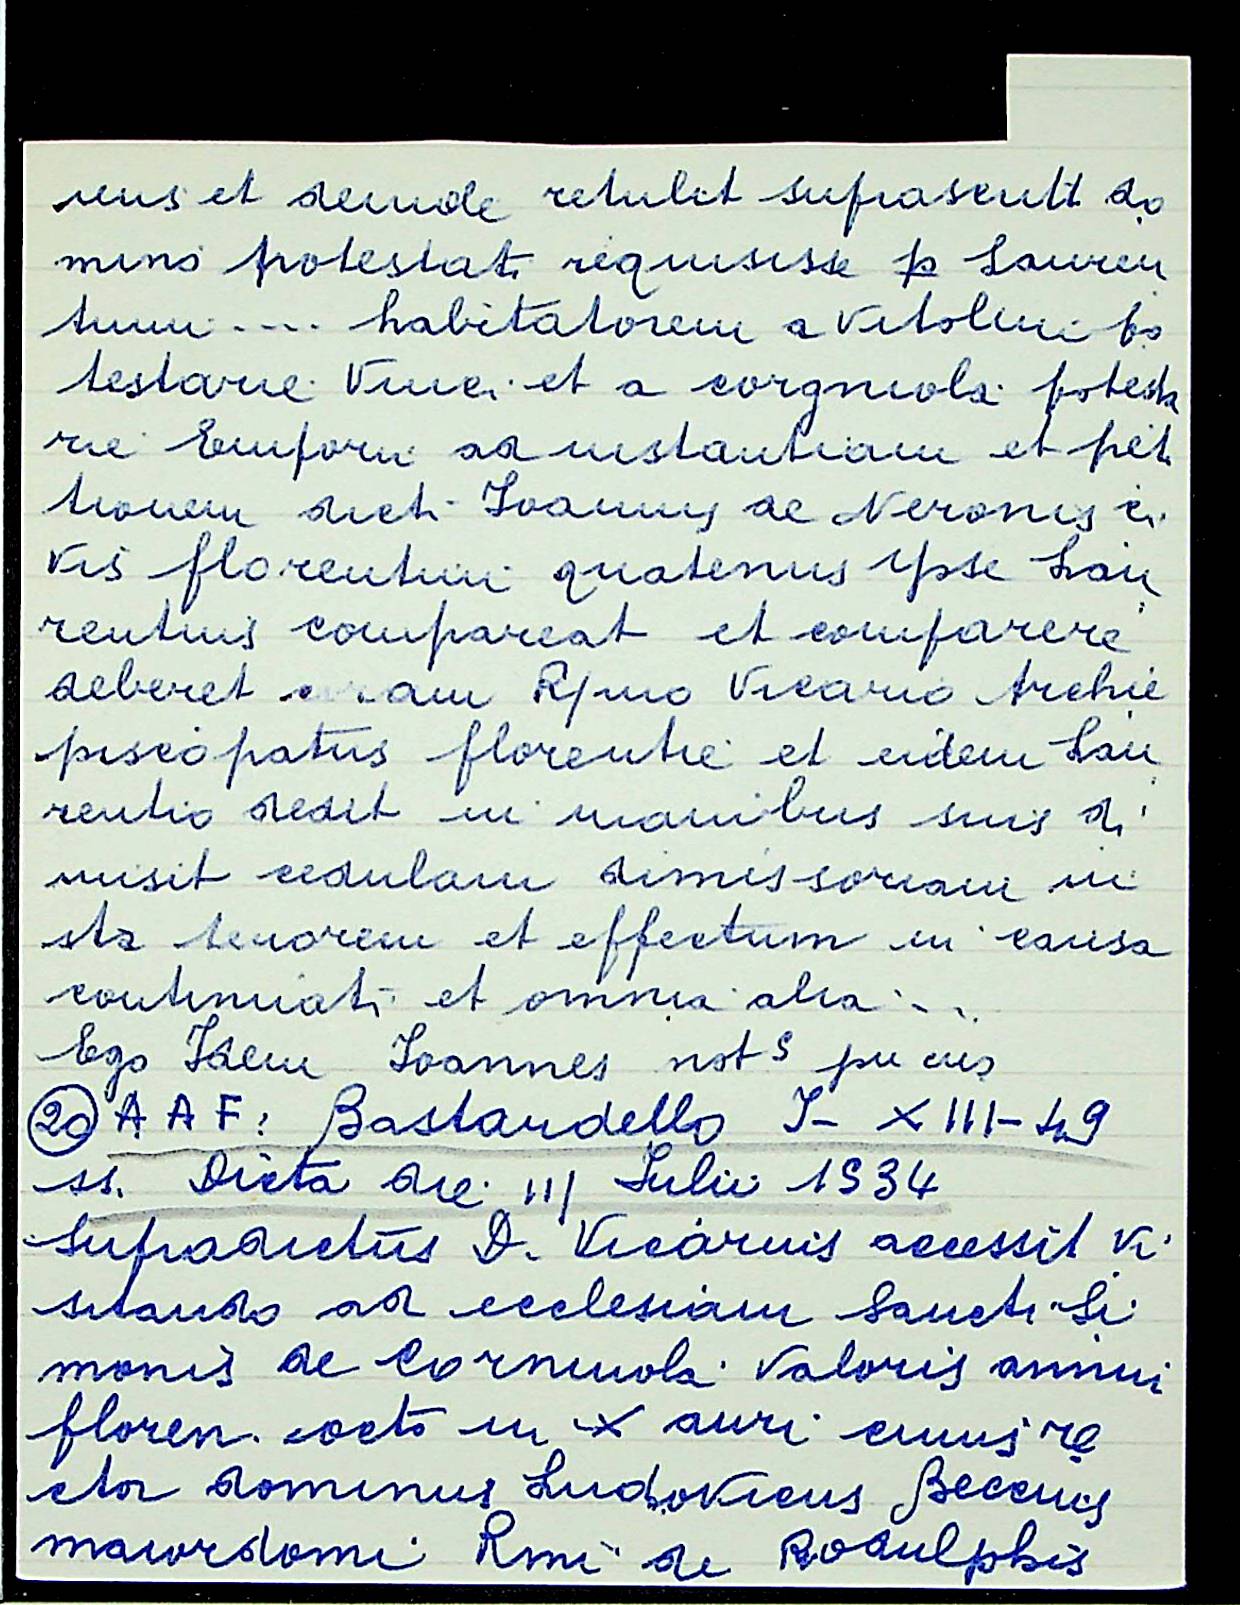 rius et deinde retulit suprascritt do
mino potestati requisisse p Lauren
tium .... habitatorem a Vitolini po
testarie Vinci et a corgniola potesta
rie Empori ad instantiam et peti
tionem dicti Ioannis de Neronis ci
vis florentini quatenus ipse Lau
rentius compareat et comparere
deberet coram R/mo Vicario Archie
piscopatus florentie et eidem Lau
rentio dedit in manibus suis di
misit cedulam dimissoriam iu
sta tenorem et effectum in causa
continuati et omnia alia ...
Ego Idem Ioannes not s
(20) A A F: Bastardello I- XIII-49
ss. Dicta die III Iulii 1534
Supradictus D. Vicarius accessit vi
sitando ad ecclesiam Sancti Si
monis de Corniuola valoris annui
floren. octo in X auri cuius re
ctor dominus Ludovicus Beccius
maiordomi Rmi de Rodulphis